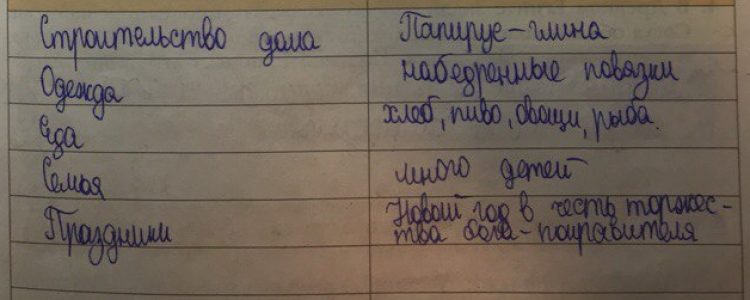 Строительство дома
Папирус-глина
Одежда
набедренные повязки
Еда
хлеб, пиво, овощи, рыба.
Семья
много детей
Праздники
Новый год в честь торжес-
тва бога-покравителя